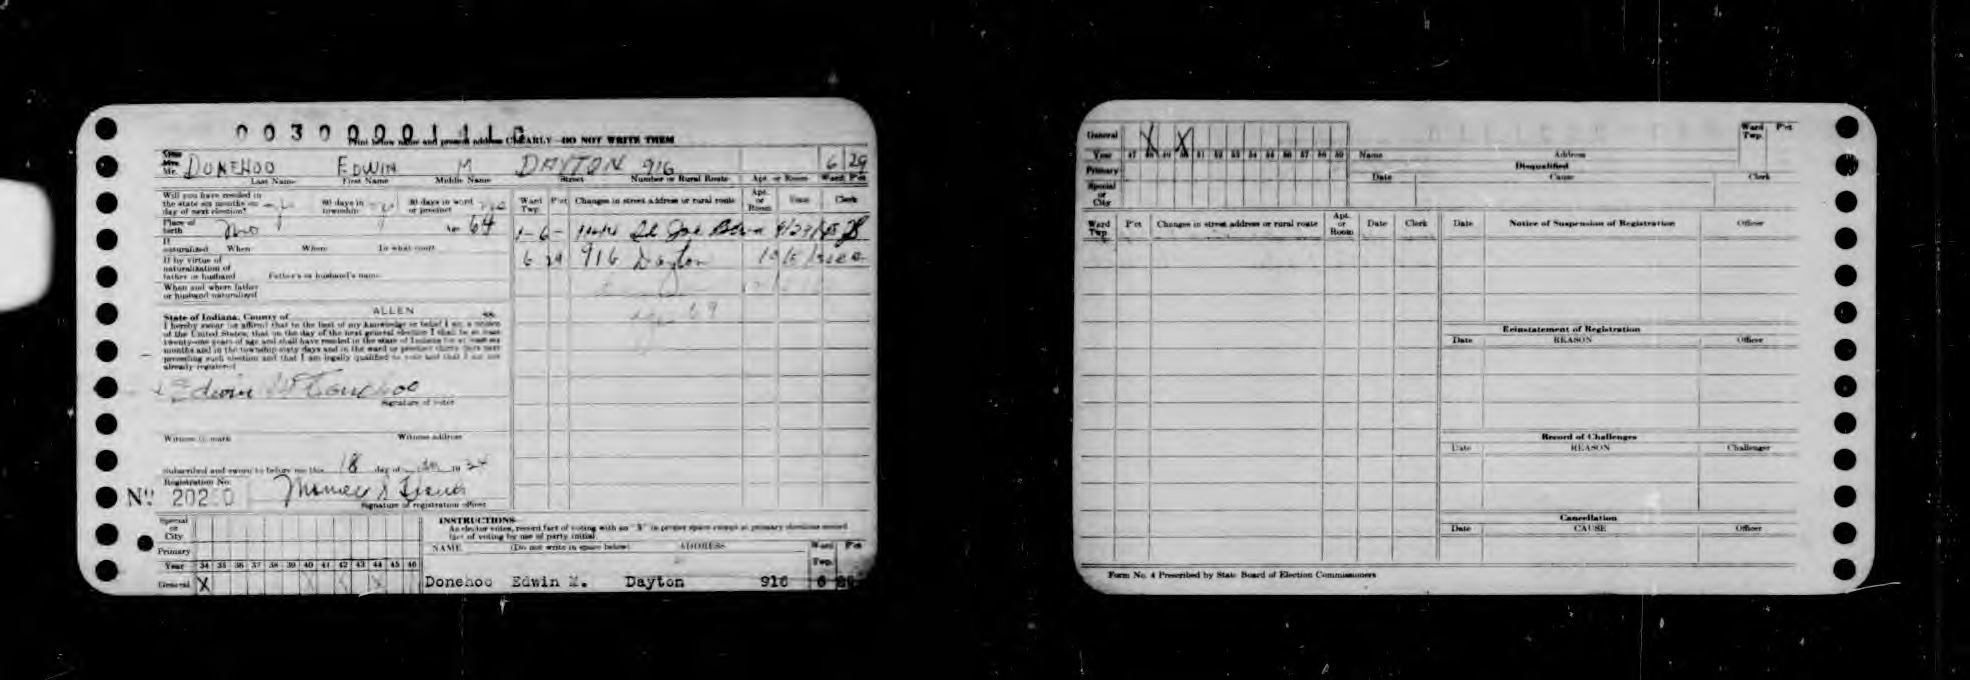 Print below name and present address CLEARLY—DO NOT WRITE THEM
Mr. DONEHOO EDWIN M DAYTON 916 6 29
Last Name First Name Middle Name Street Number or Rural Route Apt. or Room Ward Pct
Will you have resided in the state six months on day of next election? 60 days in township 30 days in ward or precinct yes
Place of birth Age 64
Ward Twp. Pct Changes in street address or rural route Apt. or Room Date Clerk
If naturalized When Where To what court
6 29 916 Dayton
If by virtue of naturalization of father or husband Father's or husband's name
When and where father or husband naturalized
State of Indiana, County of ALLEN ss.
I hereby swear or affirm that to the best of my knowledge or belief I am a citizen
of the United States; that on the day of the next general election I shall be at least
twenty-one years of age and shall have resided in the state of Indiana for at least six
months and in the township sixty days and in the ward or precinct thirty days next
preceding such election and that I am legally qualified to vote and that I am not
already registered
Edwin M Donehoo
Signature of voter
Witness to mark Witness address
Subscribed and sworn to before me this 18 day of 19 34
Registration No.
No. 202
Signature of registration officer
Special or City
Primary
Year 34 35 36 37 38 39 40 41 42 43 44 45 46
General X
INSTRUCTIONS—
As elector votes, record fact of voting with an "X" in proper space except at primary elections record
fact of voting by use of party initial.
NAME (Do not write in space below) ADDRESS Ward Twp. Pct
Donehoo Edwin M. Dayton 916 6 29
General X X
Year 47 48 49 50 51 52 53 54 55 56 57 58 59
Primary
Special or City
Name Address Ward Twp. Pct
Disqualified
Date Cause Clerk
Ward Twp. Pct Changes in street address or rural route Apt. or Room Date Clerk
Date Notice of Suspension of Registration Officer
Reinstatement of Registration
Date REASON Officer
Record of Challenges
Date REASON Challenger
Cancellation
Date CAUSE Officer
Form No. 4 Prescribed by State Board of Election Commissioners